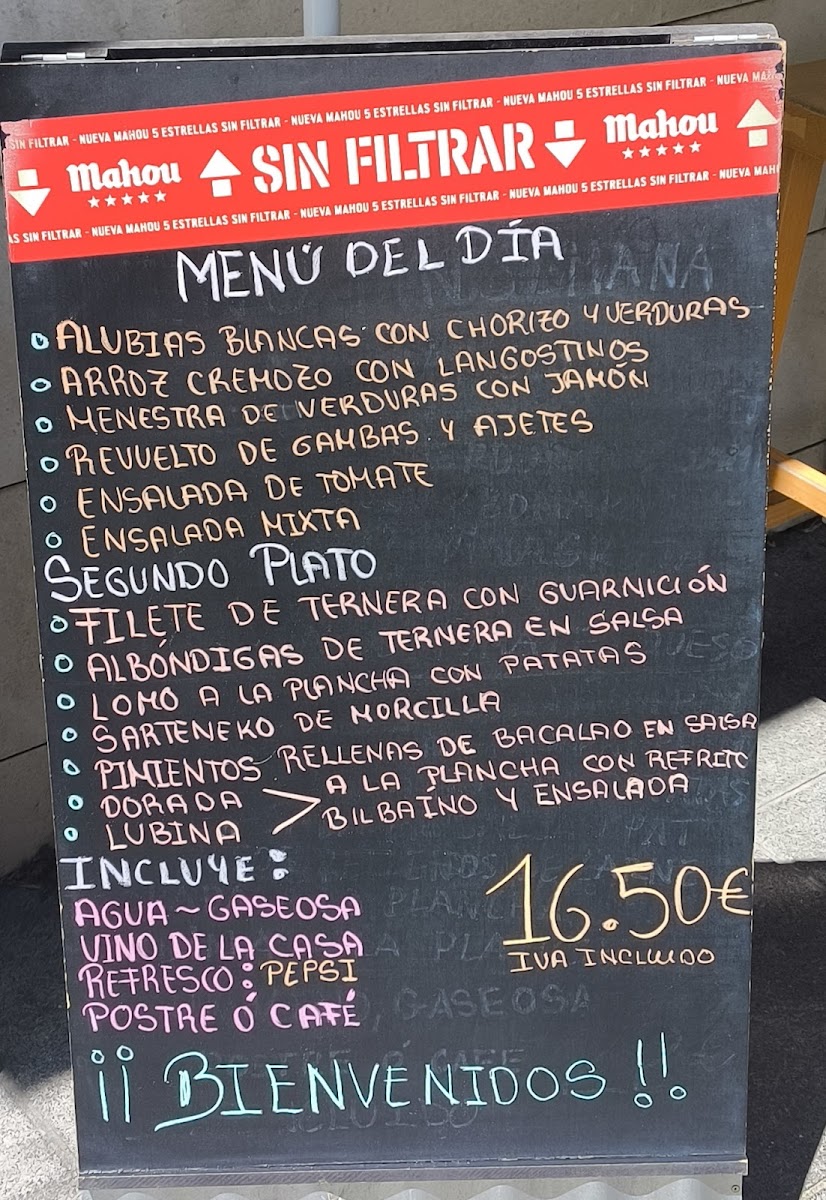 SIN FILTRAR - NUEVA MAHOU 5 ESTRELLAS SIN FILTRAR - NUEVA MAHOU 5 ESTRELLAS SIN FILTRAR - NUEVA MAHOU 5 ESTRELLAS SIN FILTRAR - NUEVA MA
Mahou SIN FILTRAR Mahou
AS SIN FILTRAR - NUEVA MAHOU 5 ESTRELLAS SIN FILTRAR - NUEVA MAHOU 5 ESTRELLAS SIN FILTRAR - NUEVA MAHOU 5 ESTRELLAS SIN FILTRAR - NUEVA MAH
MENÚ DEL DÍA
ALUBIAS BLANCAS CON CHORIZO Y VERDURAS
ARROZ CREMOZO CON LANGOSTINOS
MENESTRA DE VERDURAS CON JAMÓN
REVUELTO DE GAMBAS Y AJETES
ENSALADA DE TOMATE
ENSALADA MIXTA
SEGUNDO PLATO
FILETE DE TERNERA CON GUARNICIÓN
ALBÓNDIGAS DE TERNERA EN SALSA
LOMO A LA PLANCHA CON PATATAS
SARTENEKO DE MORCILLA
PIMIENTOS RELLENAS DE BACALAO EN SALSA
DORADA > A LA PLANCHA CON REFRITO
LUBINA BILBAÍNO Y ENSALADA
INCLUYE:
AGUA ~ GASEOSA
VINO DE LA CASA
REFRESCO: PEPSI
POSTRE Ó CAFÉ
16.50€
IVA INCLUIDO
¡¡ BIENVENIDOS !!